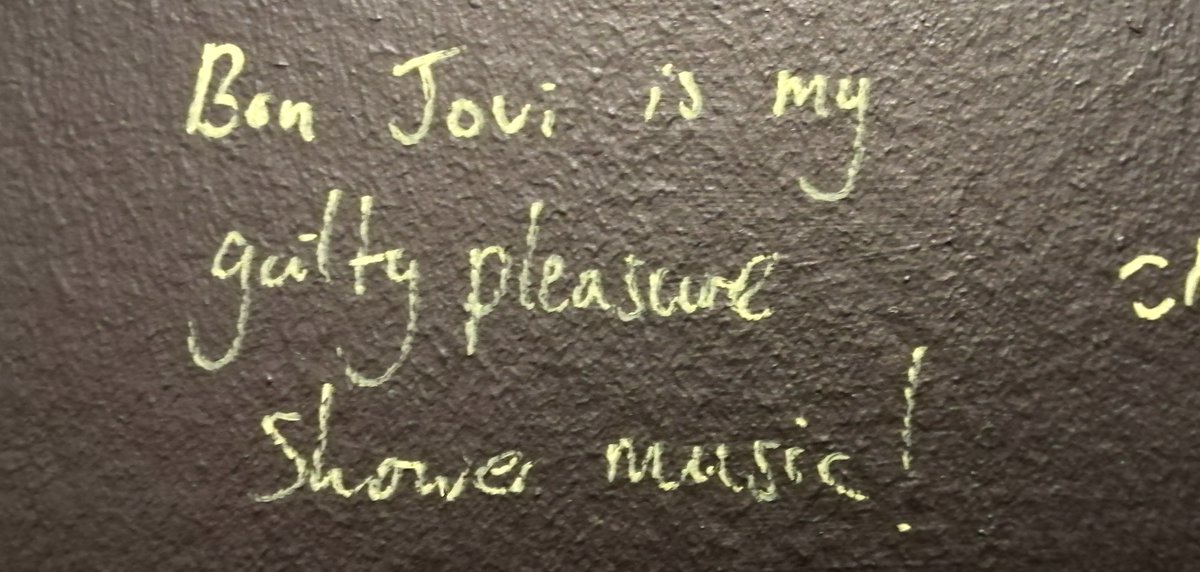 Bon Jovi is my
guilty pleasure
Shower music!